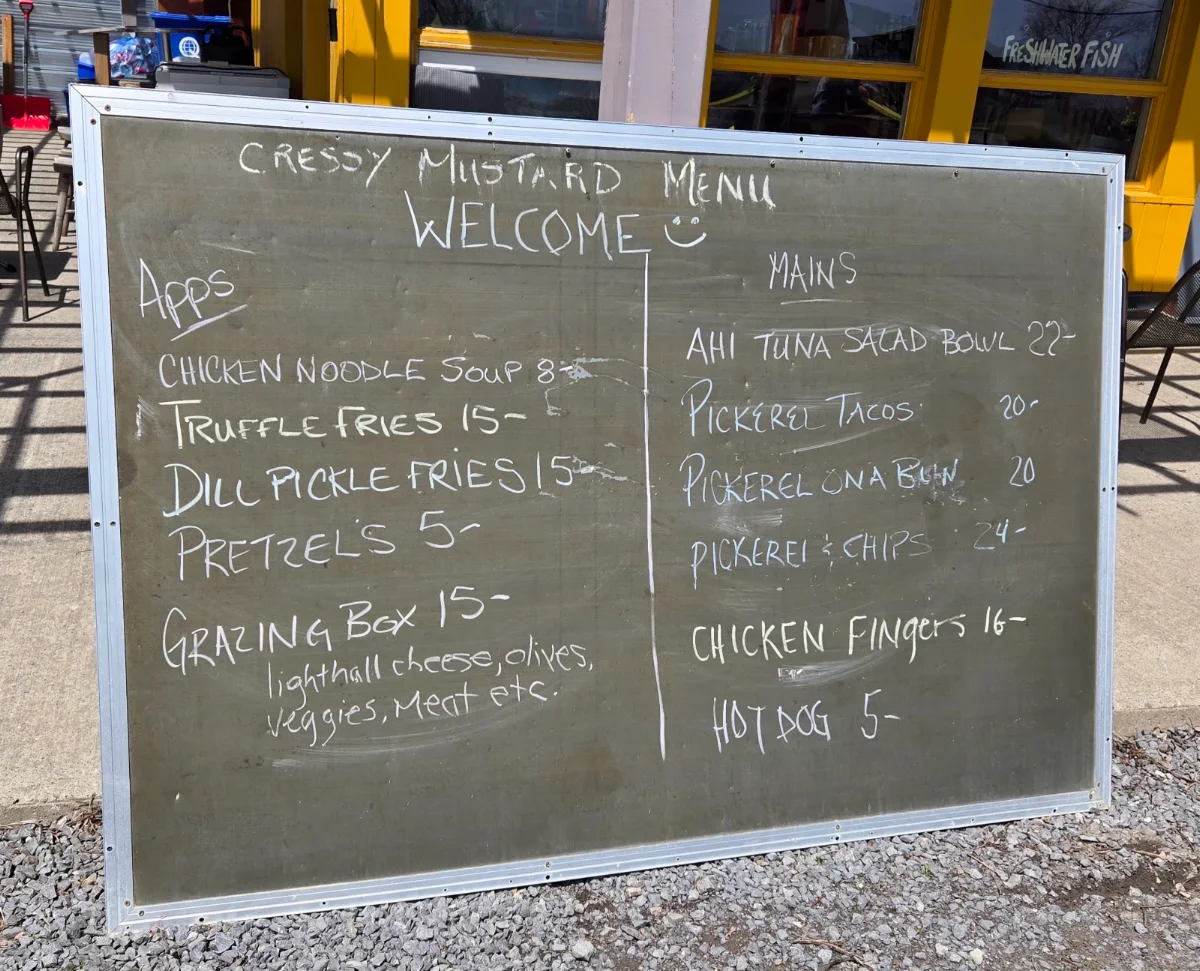 FRESHWATER FISH
CRESSY MUSTARD MENU
WELCOME
Apps
CHICKEN NOODLE SOUP 8-
TRUFFLE FRIES 15-
DILL PICKLE FRIES 15-
PRETZEL'S 5-
GRAZING BOX 15-
lighthall cheese, olives,
veggies, Meat etc.
MAINS
AHI TUNA SALAD BOWL 22-
PICKEREL TACOS 20-
PICKEREL ON A BUN 20
PICKEREL & CHIPS 24-
CHICKEN FINgers 16-
HOT DOG 5-